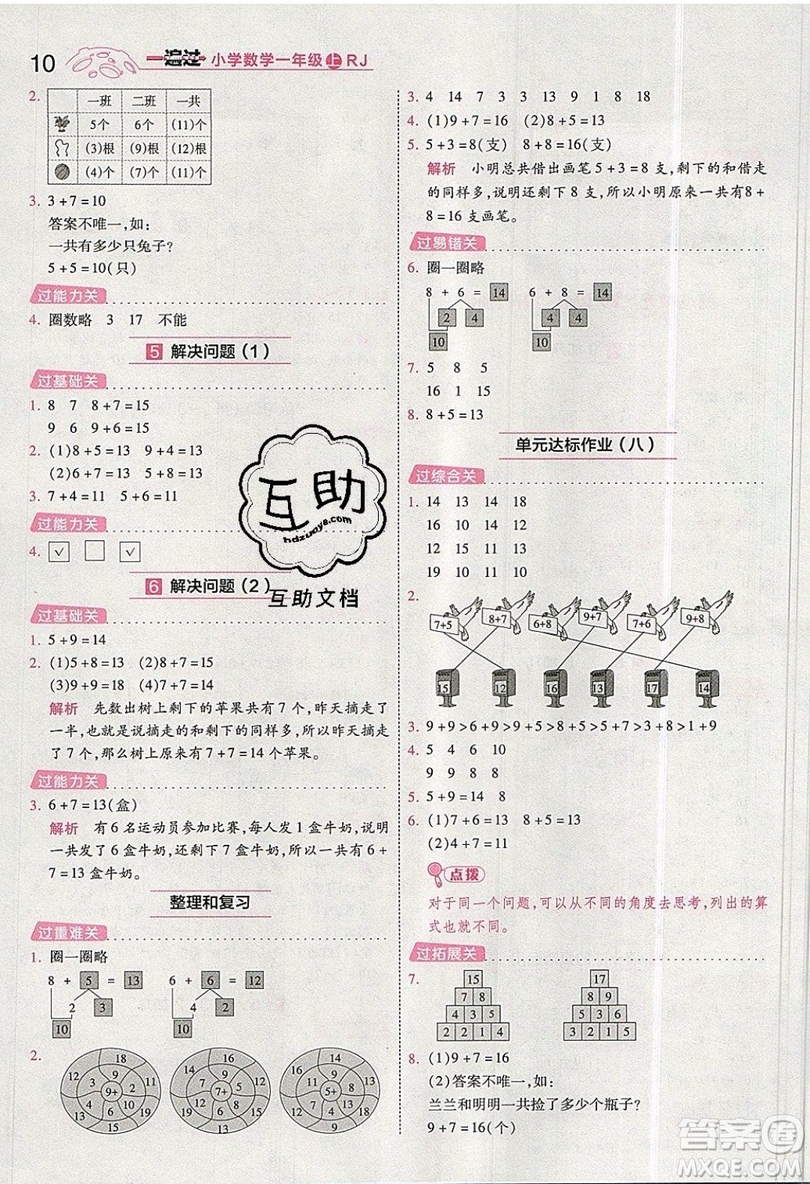 10 一遍过 小学数学一年级 上 RJ
2.
一班 二班 一共
5个 6个 (11)个
(3)根 (9)根 (12)根
(4)个 (7)个 (11)个
3. 3+7=10
答案不唯一,如:
一共有多少只兔子?
5+5=10(只)
过能力关
4. 圈数略 3 17 不能
5 解决问题(1)
过基础关
1. 8 7 8+7=15
9 6 9+6=15
2. (1)8+5=13 9+4=13
(2)6+7=13 5+8=13
3. 7+4=11 5+6=11
过能力关
4. ✓ ✓
6 解决问题(2)
过基础关
1. 5+9=14
2. (1)5+8=13 (2)6+8=14
(3)9+9=18 (4)7+7=14
解析 先数出树上剩下的苹果共有7个,昨天摘走了
一半,也就是说摘走的和剩下的同样多,所以昨天摘
走了7个,那么树上原来有7+7=14个苹果。
过能力关
3. 6+7=13(盒)
解析 有6名运动员参加比赛,每人发1盒牛奶,说明
一共发了6盒牛奶,还剩7盒牛奶,所以一共有6+
7=13盒牛奶。
整理和复习
过重难关
1. 圈一圈略
8 + 5 = 13 6 + 6 = 12
2 3 4 2
10 10
2.
9+ 7+ 3+
3. 4 14 7 9 11 8 18
4. (1)9+7=16 (2)8+5=13
5. 5+3=8(支) 8+8=16(支)
解析 小明总共借出画笔5+3=8支,剩下的和借走
的同样多,说明还剩下8支,所以小明原来一共有8+
8=16支画笔。
过易错关
6. 圈一圈略
8 + 6 = 14 6 + 8 = 14
2 4 4 4
10 10
7. 5 8 5
16 1 15
8. 8+5=13
单元达标作业(八)
过综合关
1. 14 13 14 18
16 10 14 12
12 15 11 13
19 10 11 10
2.
7+5 8+7 6+8 9+7 7+6 9+8
15 12 16 13 17 14
3. 9+9>6+9>5+9>5+8>3+9>8+3>1+9
4. 5 4 6 10
9 8 9 8
5. 5+9=14
6. (1)7+6=13 8+5=13
(2)4+7=11
点拨
对于同一个问题,可以从不同的角度去思考,列出的算
式也就不同。
过拓展关
7.
15 16
7 8 8 8
5 4 9 5 3 6
6 5 8 10 3 12 5 11
8. (1)9+7=16
(2)答案不唯一,如:
兰兰和明明一共捡了多少个瓶子?
9+7=16(个)
互助
hdzuoye8.com
互助文档
答案圈
MXQE.COM